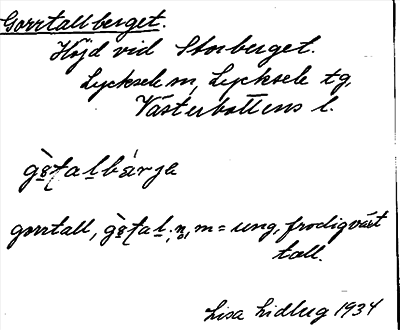 Gorrtallberget.
Höjd vid Storberget.
Lycksele m, Lycksele tg,
Västerbottens l.
gorrtall, m = ung, frodigväxt
tall.
Lisa Lidberg 1934